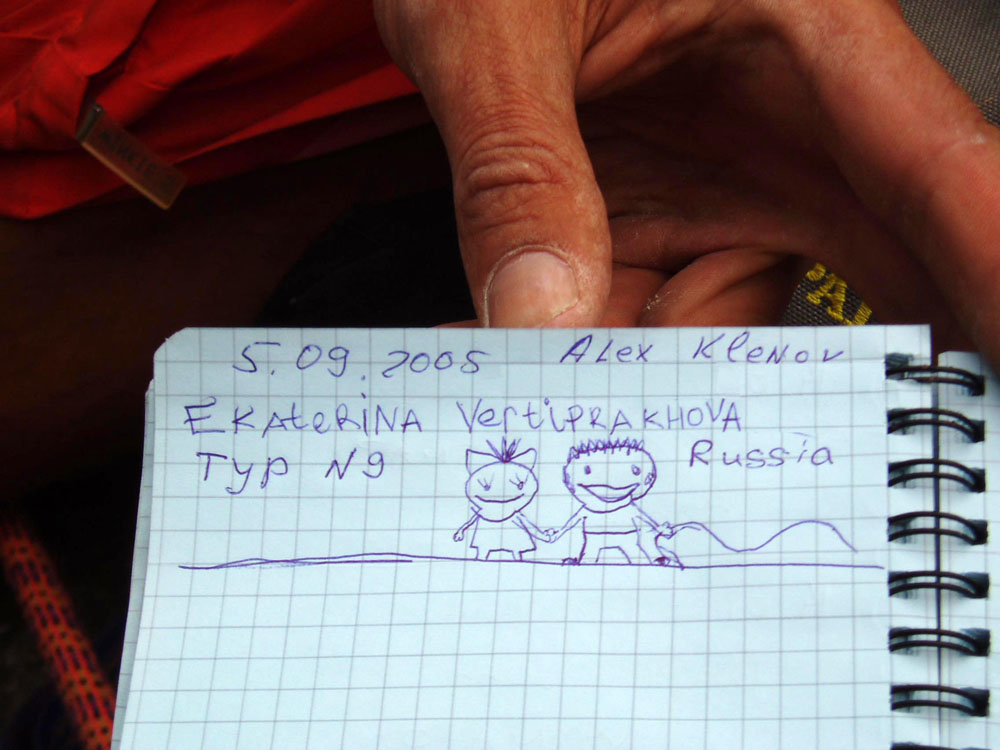 5.09.2005 Alex Klenov
EKAterINA VertiPRAKHOVA
Typ N9 Russia